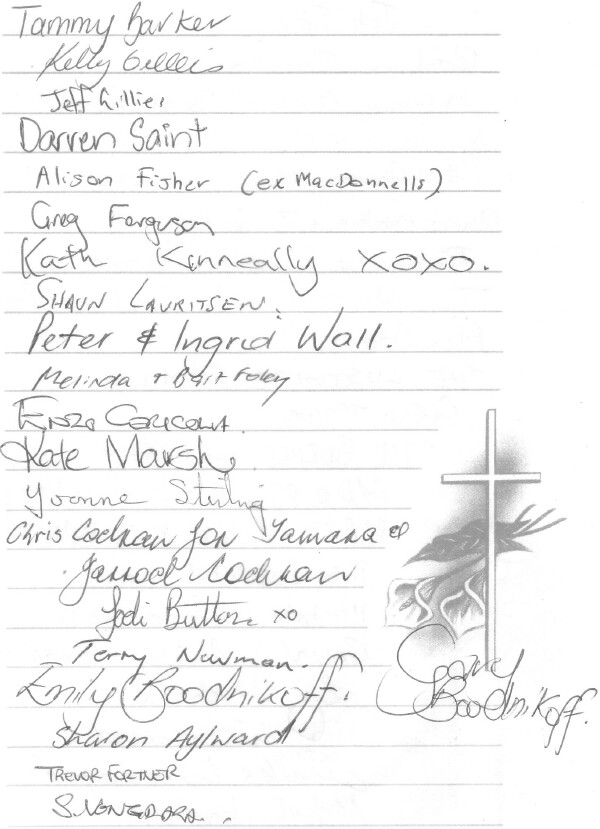 Tammy Barker
Kelly Gillis
Jeff Gillies
Darren Saint
Alison Fisher (ex MacDonnells)
Greg Ferguson
Kath Kinneally xoxo.
SHAUN LAURITSEN.
Peter & Ingrid Wall.
Melinda + Brit Foley
Enzo
Kate Marsh
Yvonne Sterling
Chris Cochran for Tamara
Jarrod Cochran
Jodi Button xo
Terry Newman.
Emily Boodnikoff.
Gary Boodnikoff.
Sharon Aylward
TREVOR FORTNER